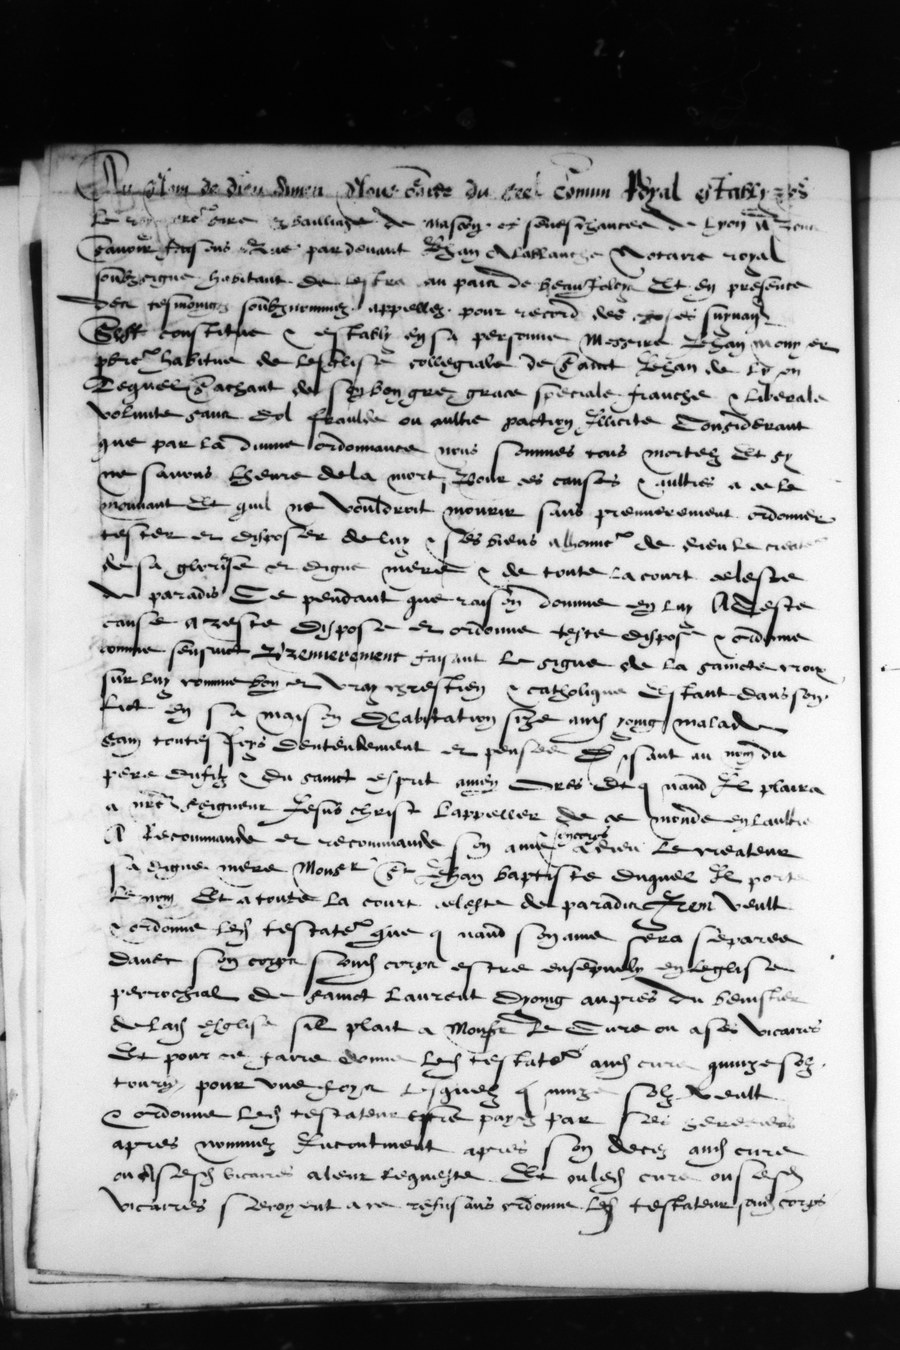 Au Nom de dieu amen Nous garde du seel Comun Royal estably es
bailliage de mascon et seneschaucee de Lyon
Scavoir faisons Que par devant Jehan Notaire royal
soubzsigne habitant de au pais de beaujoloys Et en presence
des tesmoings soubznommez appellez pour record des choses suyvans
Sest constitue & estably en sa personne Messire Jehan
pbre habitue de Lesglise collegiale de sainct Jehan de
Lequel sachant de son bon gre grace speciale franche & liberale
volunte sans dol fraulde ou aultre paction Illicite Considerant
que par la divine ordonnance nous sommes tous mortelz Et sy
ne savons lheure de la mort Pour ces causes & aultres a ce le
mouvant Et quil ne vouldroit mourir sans premierement ordonner
tester et disposer de luy & ses biens a lhonneur de dieu le createur
de sa glorieuse et digne mere & de toute la court celeste
de paradis Ce pendant que raison domine en luy A ceste
cause a teste dispose et ordonne teste dispose & ordonne
comme sensuict Premierement faisant le signe de la saincte croix
sur luy comme bon et vray chrestien & catholique Estant dans son
lict en sa maison dhabitation size aud malade
sain toutesfoys dentendement et pensee Disant au nom du
pere du filz & du sainct esprit amen Ores et quand Il plaira
a nre seigneur Jesus christ lappeller de ce monde en laultre
A Recommande et recommande son ame a dieu le createur
sa digne mere Monsr St Jehan baptiste duquel Il porte
le nom Et a toute la court celeste de paradis Item veult
& ordonne led testateur que quand son ame sera separee
davec son corps sond corps estre ensepvely en leglise
perrochial de sainct Laurent aupres du benistier
de lad esglise sil plait a Monsr le Cure ou a ses vicaires
Et pour ce faire donne led testateur aud cure quinze solz
tourn pour une foys Lesquelz quinze solz veult
& ordonne led testateur estre payez par ses heritiers
apres nommez Incontinent apres son deces aud cure
ou a sesd vicaires a leur requeste Et ou led cure ou sesd
vicaires seroyent a ce refusans ordonne led testateur sond corps